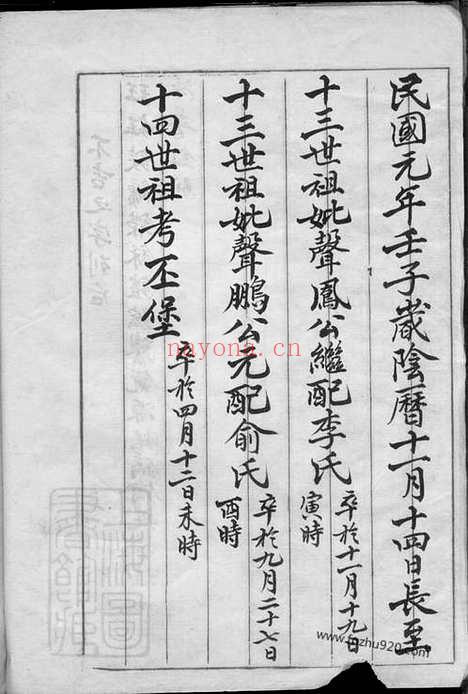 民國元年壬子歲陰曆十一月十四日長至
十三世祖妣聲鳳公繼配李氏
卒於十一月十九日
寅時
十三世祖妣聲鵬公元配俞氏
卒於九月二十七日
酉時
十四世祖考丕堡
卒於四月十二日未時
nayona.cn
www.jiazhu920.com